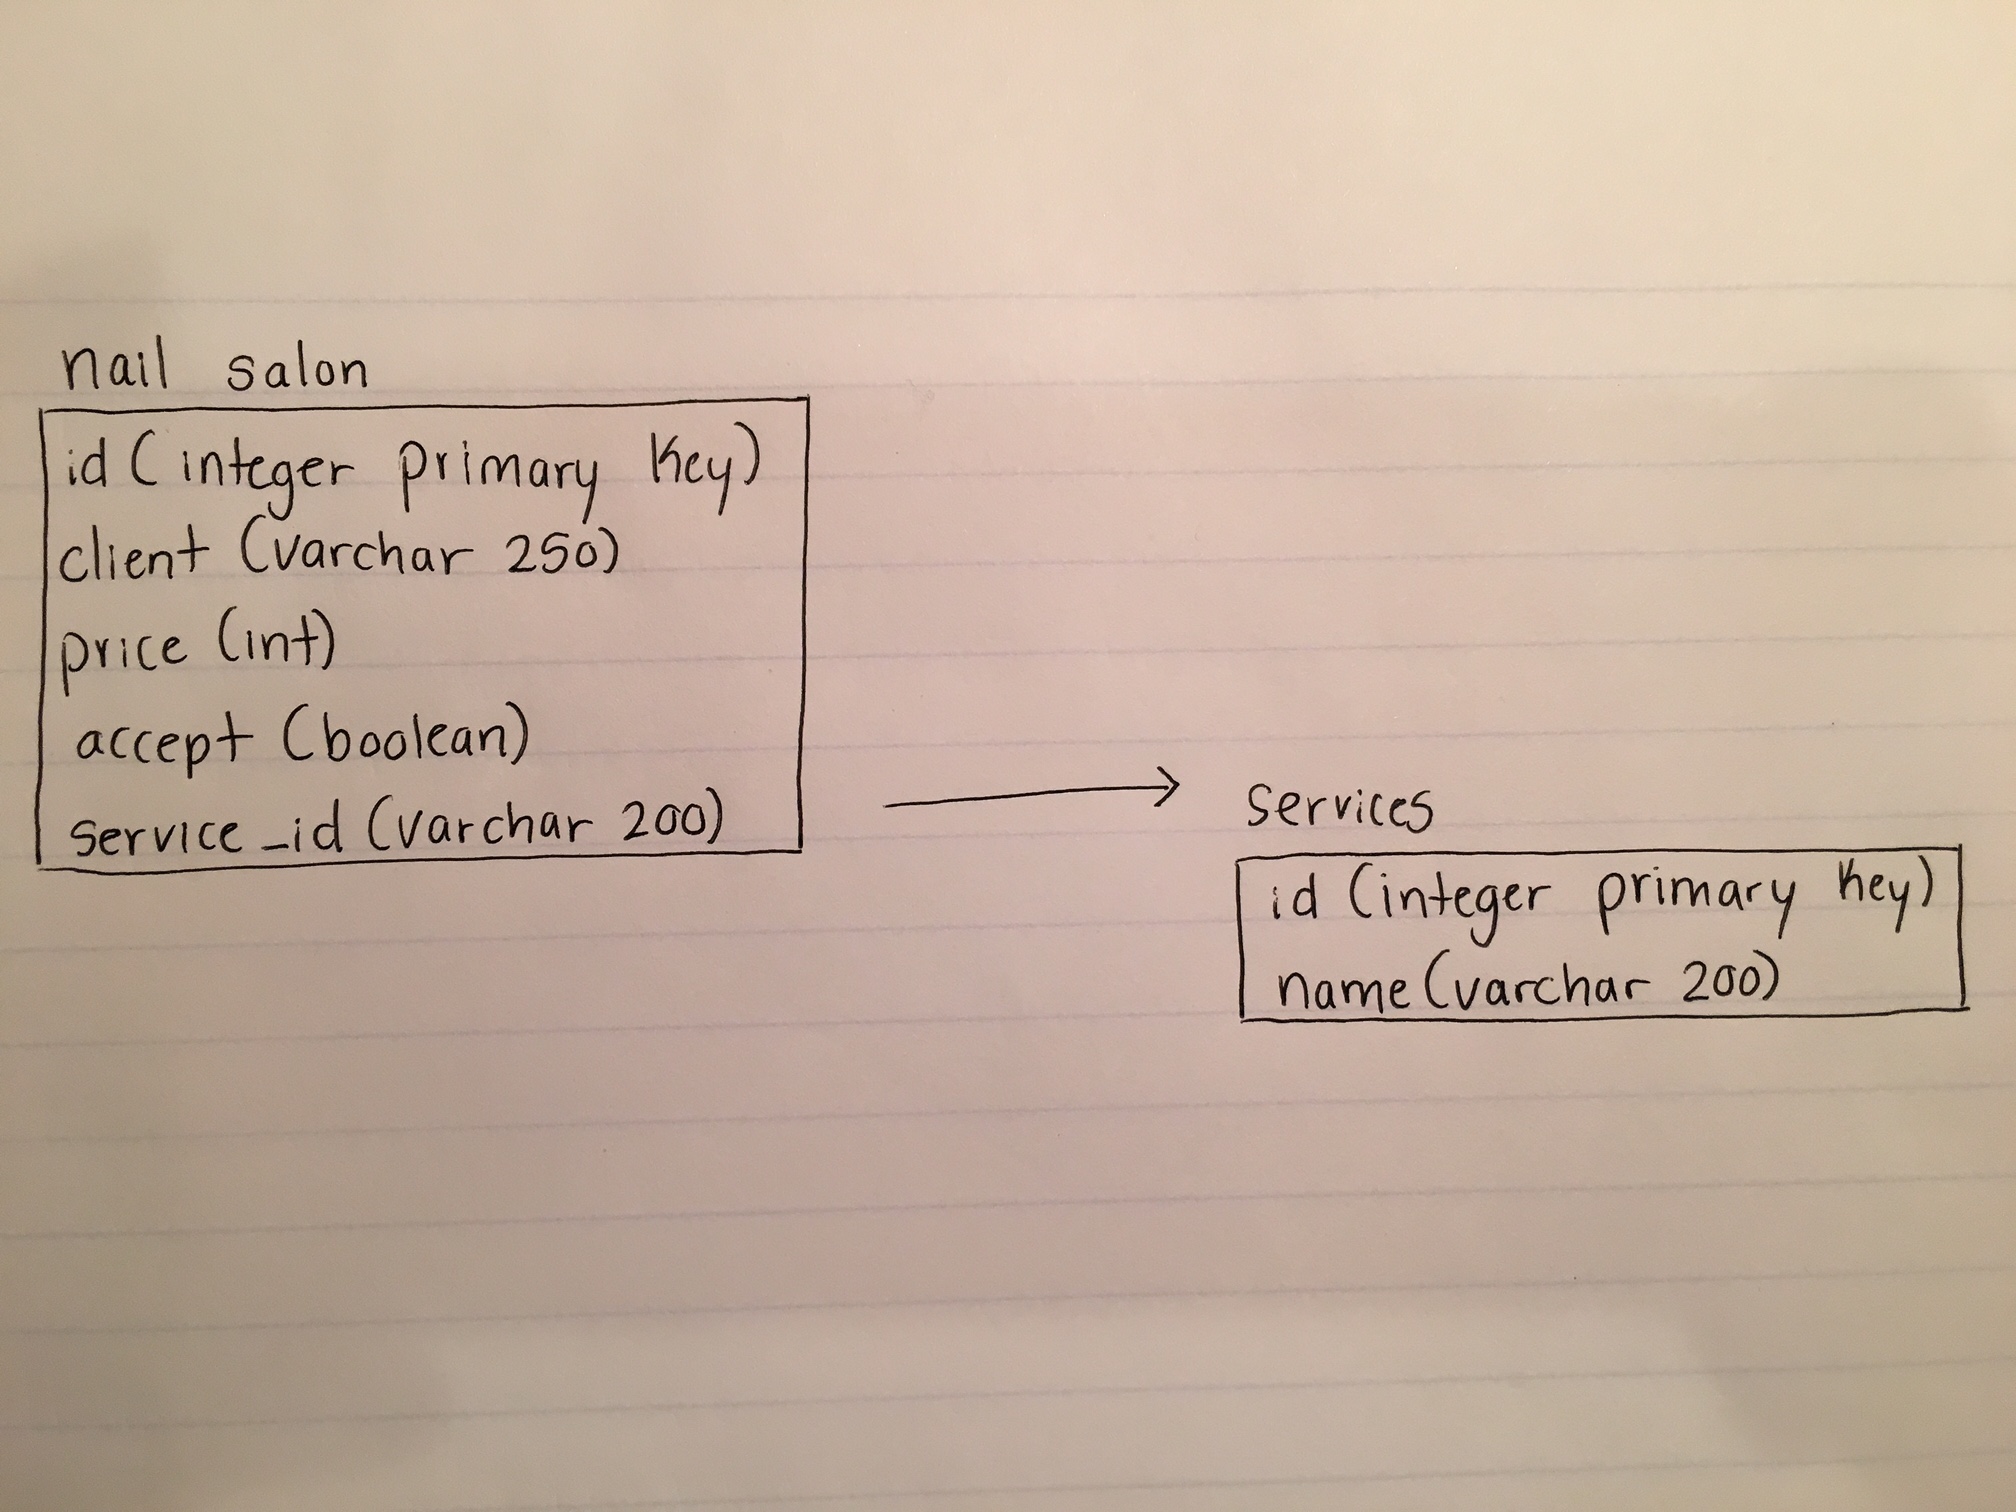 nail salon
id (integer primary key)
client (varchar 250)
price (int)
accept (boolean)
service_id (varchar 200)
services
id (integer primary key)
name (varchar 200)